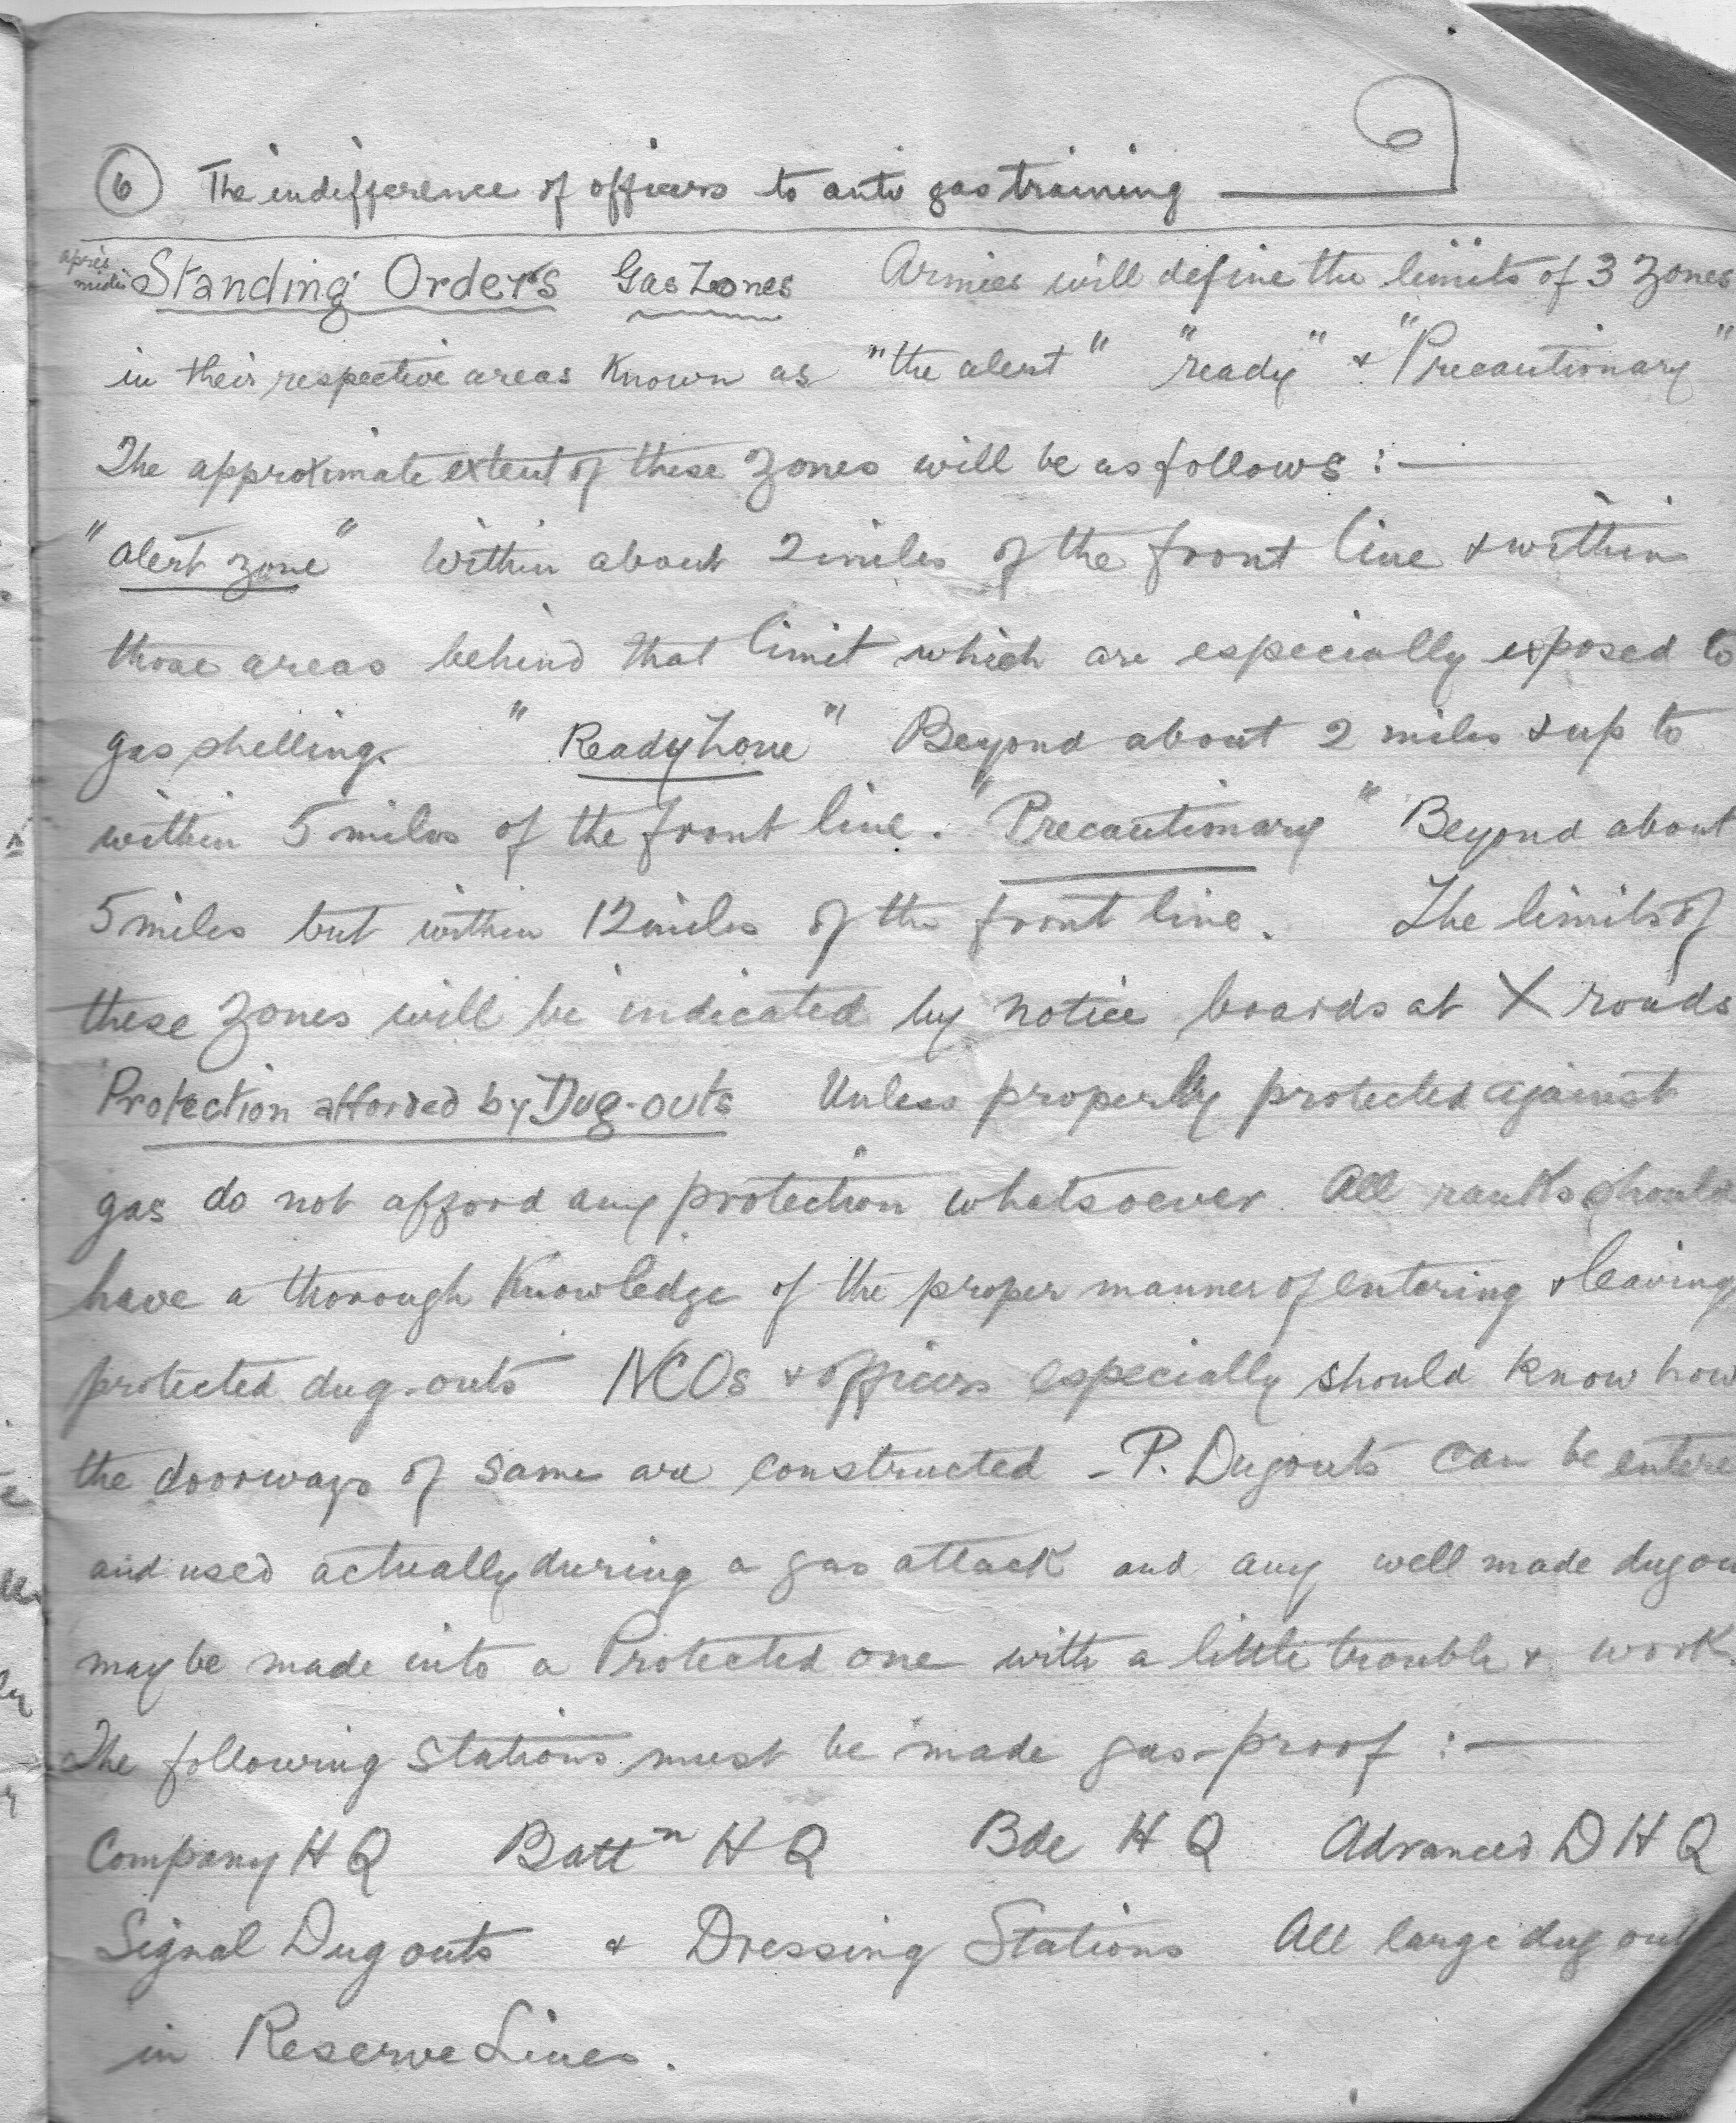 ⑥ The indifference of officers to anti gas training
après midi Standing Orders Gas Zones Armies will define the limits of 3 zones
in their respective areas known as "the alert" "ready" & "Precautionary"
The approximate extent of these zones will be as follows :—
"alert zone" Within about 2 miles of the front line & within
those areas behind that limit which are especially exposed to
gas shelling. "Ready Zone" Beyond about 2 miles & up to
within 5 miles of the front line. "Precautionary" Beyond about
5 miles but within 12 miles of the front line. The limits of
these zones will be indicated by notice boards at X roads
Protection afforded by Dug-outs Unless properly protected against
gas do not afford any protection whatsoever. All ranks should
have a thorough knowledge of the proper manner of entering & leaving
protected dug-outs NCOs & officers especially should know how
the doorways of same are constructed - P. Dugouts can be entere
and used actually during a gas attack and any well made dugou
may be made into a Protected one with a little trouble & work.
The following stations must be made gas-proof :—
Company H Q Battn H Q Bde H Q Advanced D H Q
Signal Dugouts & Dressing Stations All large dug out
in Reserve Lines.